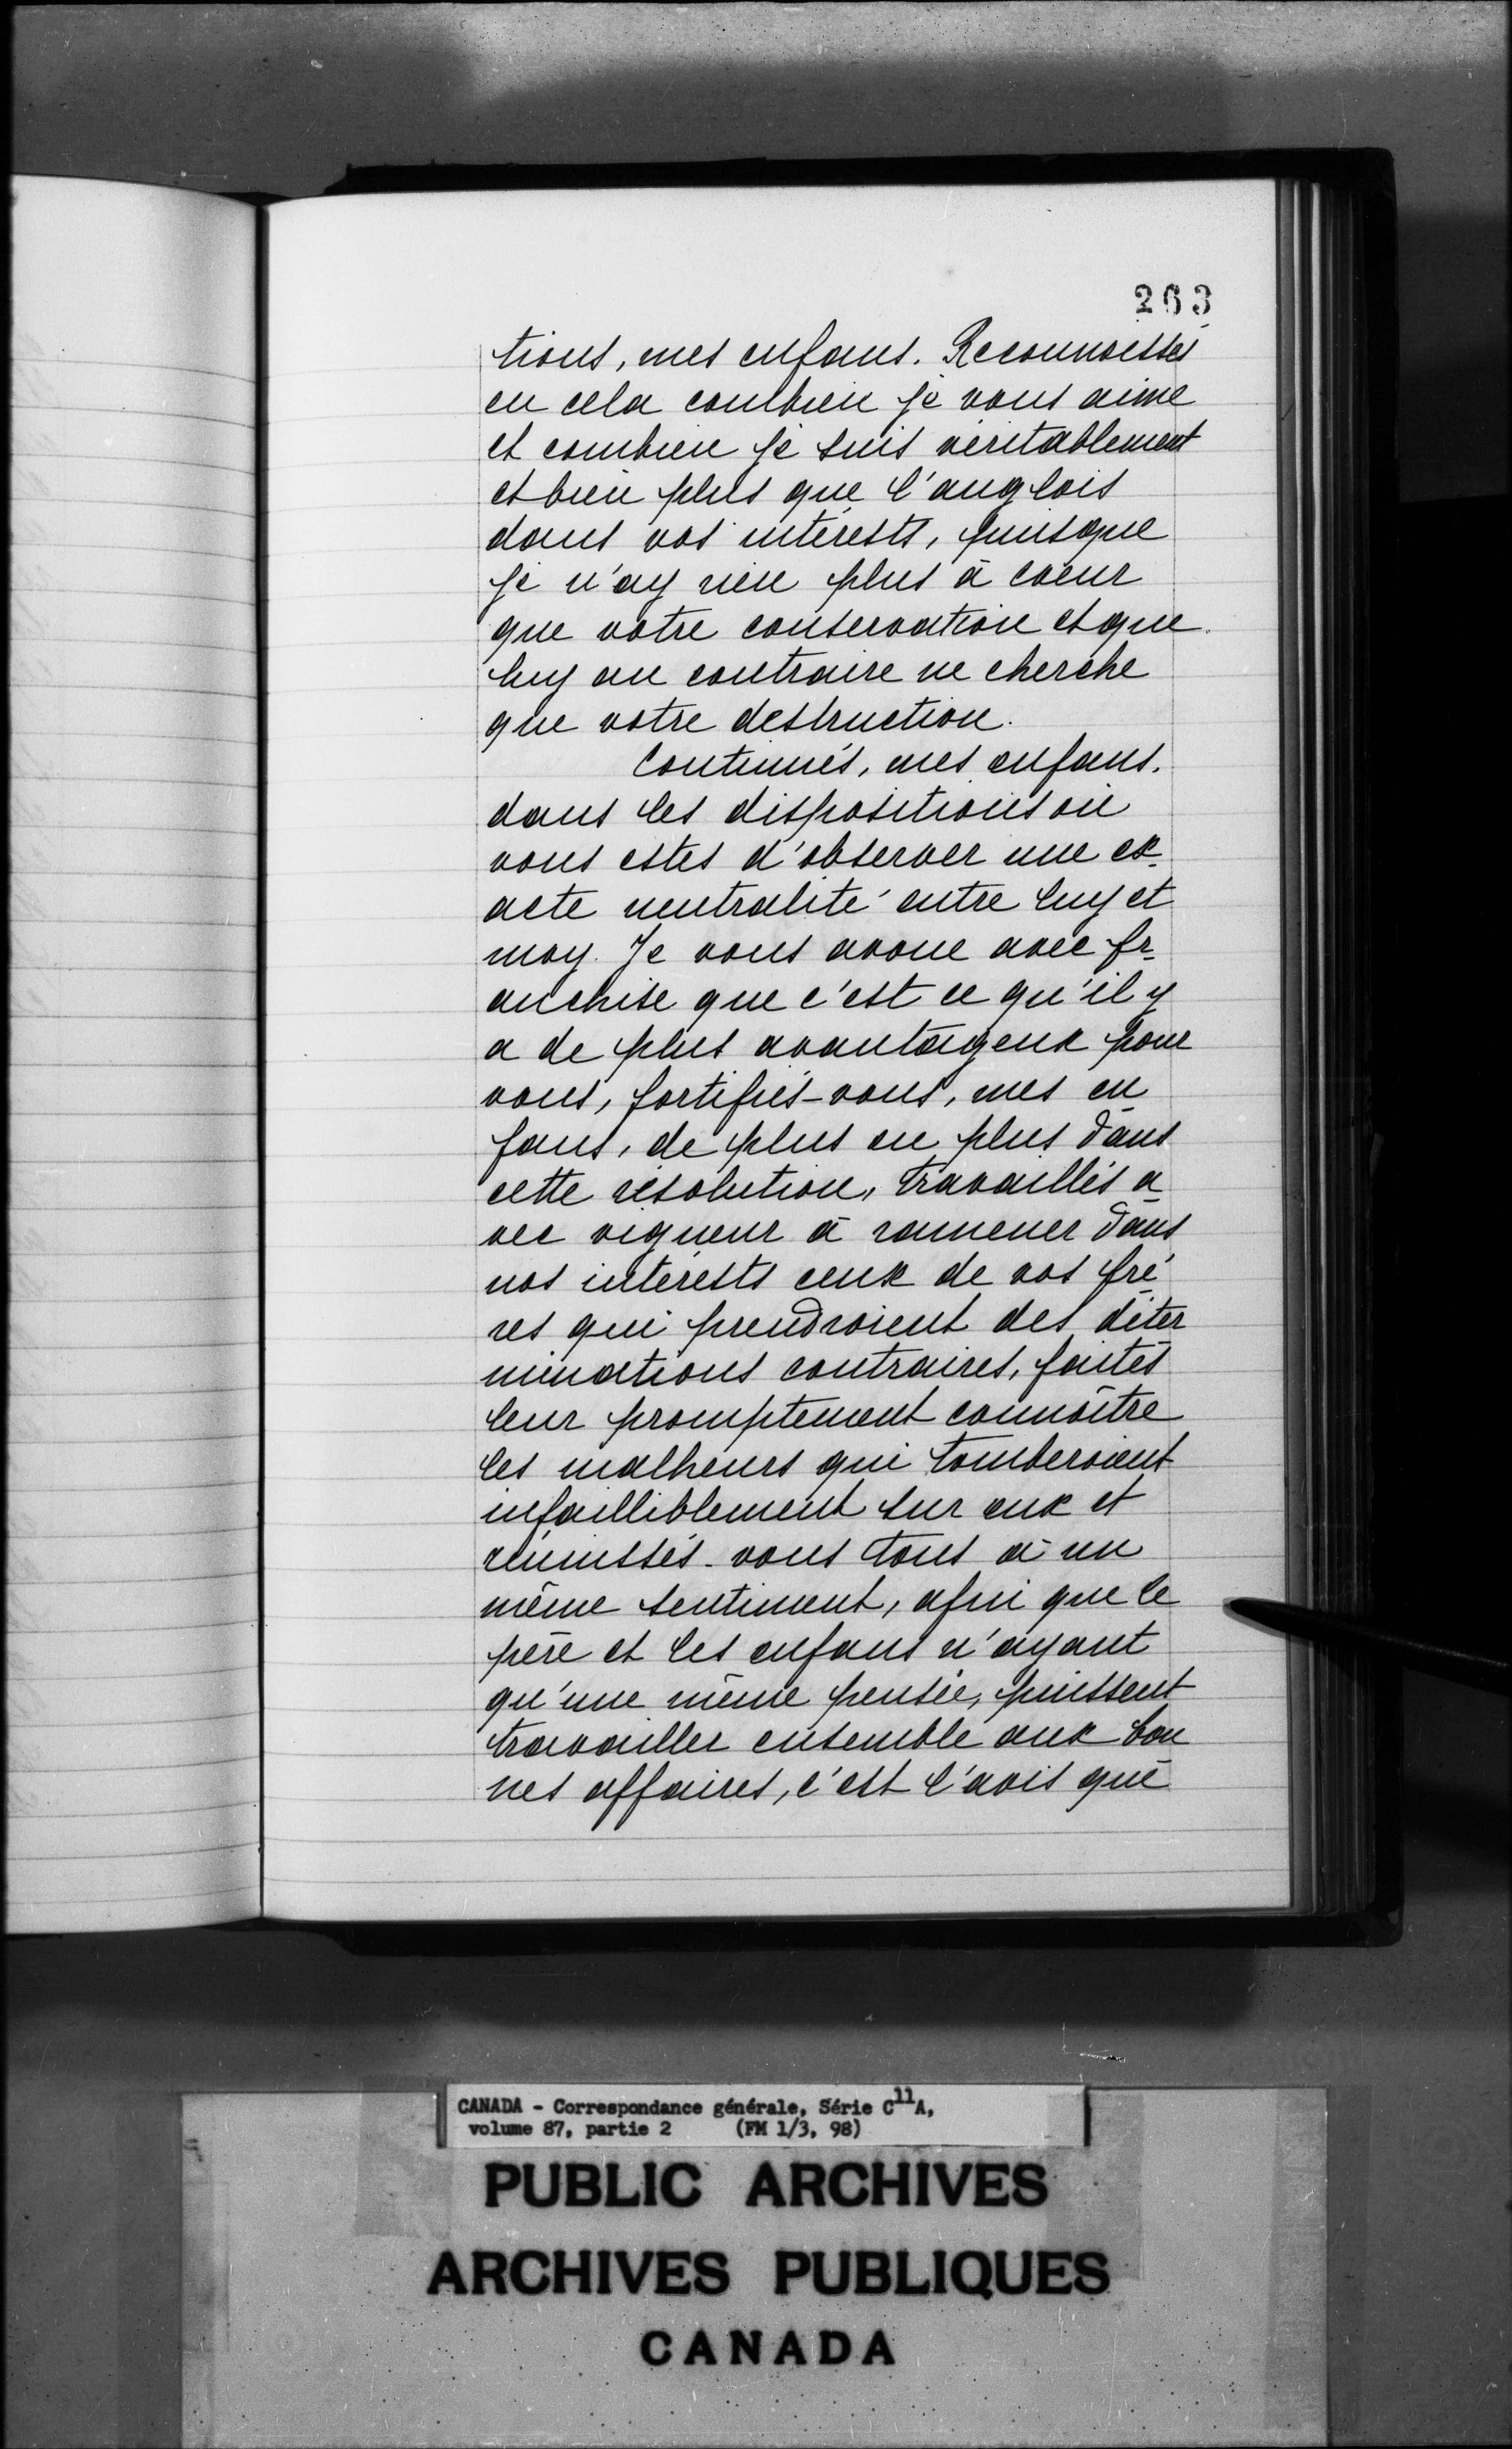 263
tions, mes enfans. Reconnoissés
en cela combien je vous aime
et combien je suis véritablement
et bien plus que l'anglois
dans vos intérests, puisque
je n'ay rien plus à coeur
que votre conservation et que
luy au contraire ne cherche
que votre destruction.
Continués, mes enfans,
dans les dispositions où
vous estes d'observer une ex-
acte neutralité entre luy et
moy. Je vous avoue avec fr-
anchise que c'est ce qu'il y
a de plus avantageux pour
vous, fortifiés-vous, mes en-
fans, de plus en plus dans
cette résolution, travaillés a-
vec vigueur à ramener dans
nos intérests ceux de vos frè-
res qui prendroient des déter-
minations contraires, faites
leur promptement connoître
les malheurs qui tomberoient
infailliblement sur eux et
réunissés-vous tous à un
même sentiment, afin que le
père et les enfans n'ayant
qu'une même pensée, puissent
travailler ensemble aux bon-
nes affaires, c'est l'avis que
CANADA - Correspondance générale, Série C11A,
volume 87, partie 2 (FM 1/3, 98)
PUBLIC ARCHIVES
ARCHIVES PUBLIQUES
CANADA